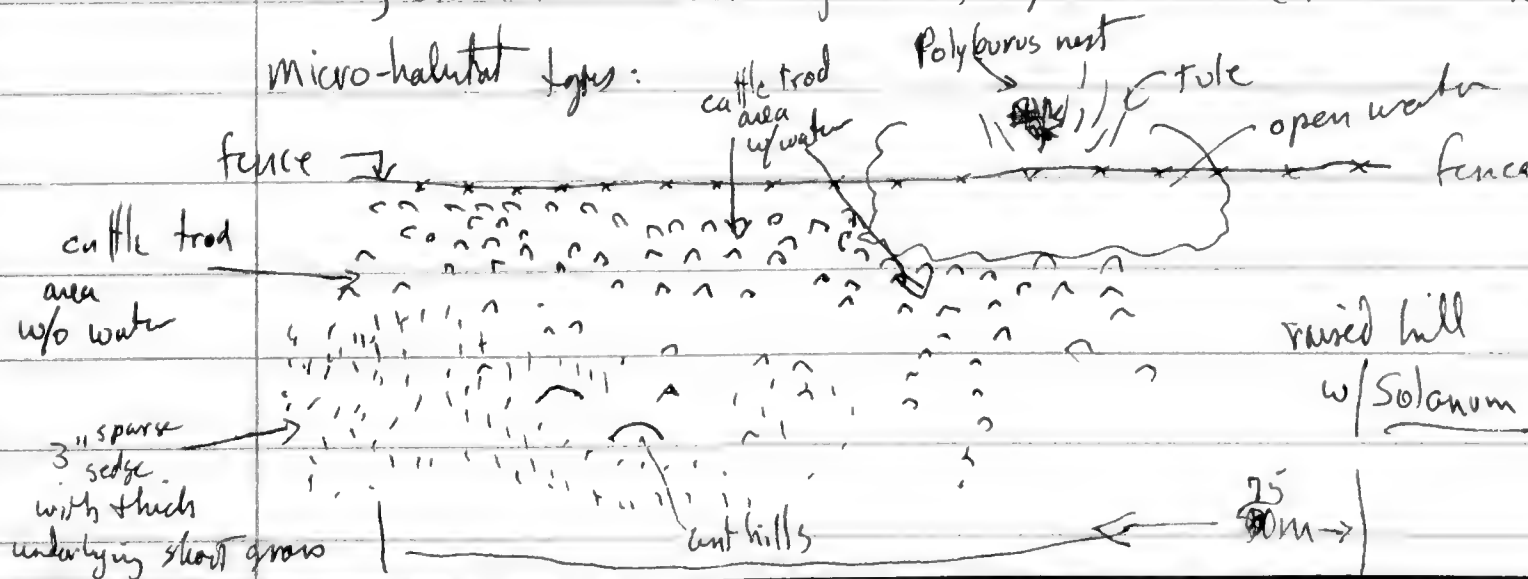 micro-habitat types:
Polyburus nest
tule
open water
cattle trod
area
w/ water
fence
fence
cattle trod
area
w/o water
raised hill
w/ Solanum
3" sparse
sedge
with thick
underlying short grass
ant hills
75
m